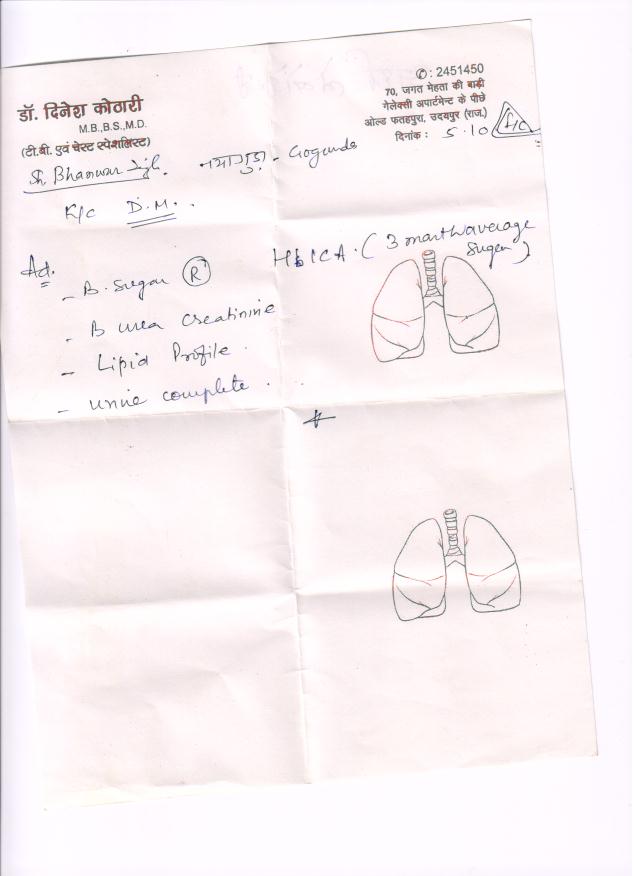 डॉ. दिनेश कोठारी
M.B.,B.S.,M.D.
(टी.बी. एवं चेस्ट स्पेशलिस्ट)
✆: 2451450
70, जगत मेहता की बाड़ी
गेलेक्सी अपार्टमेन्ट के पीछे
ओल्ड फतहपुरा, उदयपुर (राज.)
दिनांक : 5.10
Sh Bhanwar Singh. नयागुड़ा - Gogunda
K/c D.M.
Ad.
- B. Sugar (R)
HbICA. (3 month average
Sugar)
- B urea creatinine
- Lipid Profile.
- urine complete.